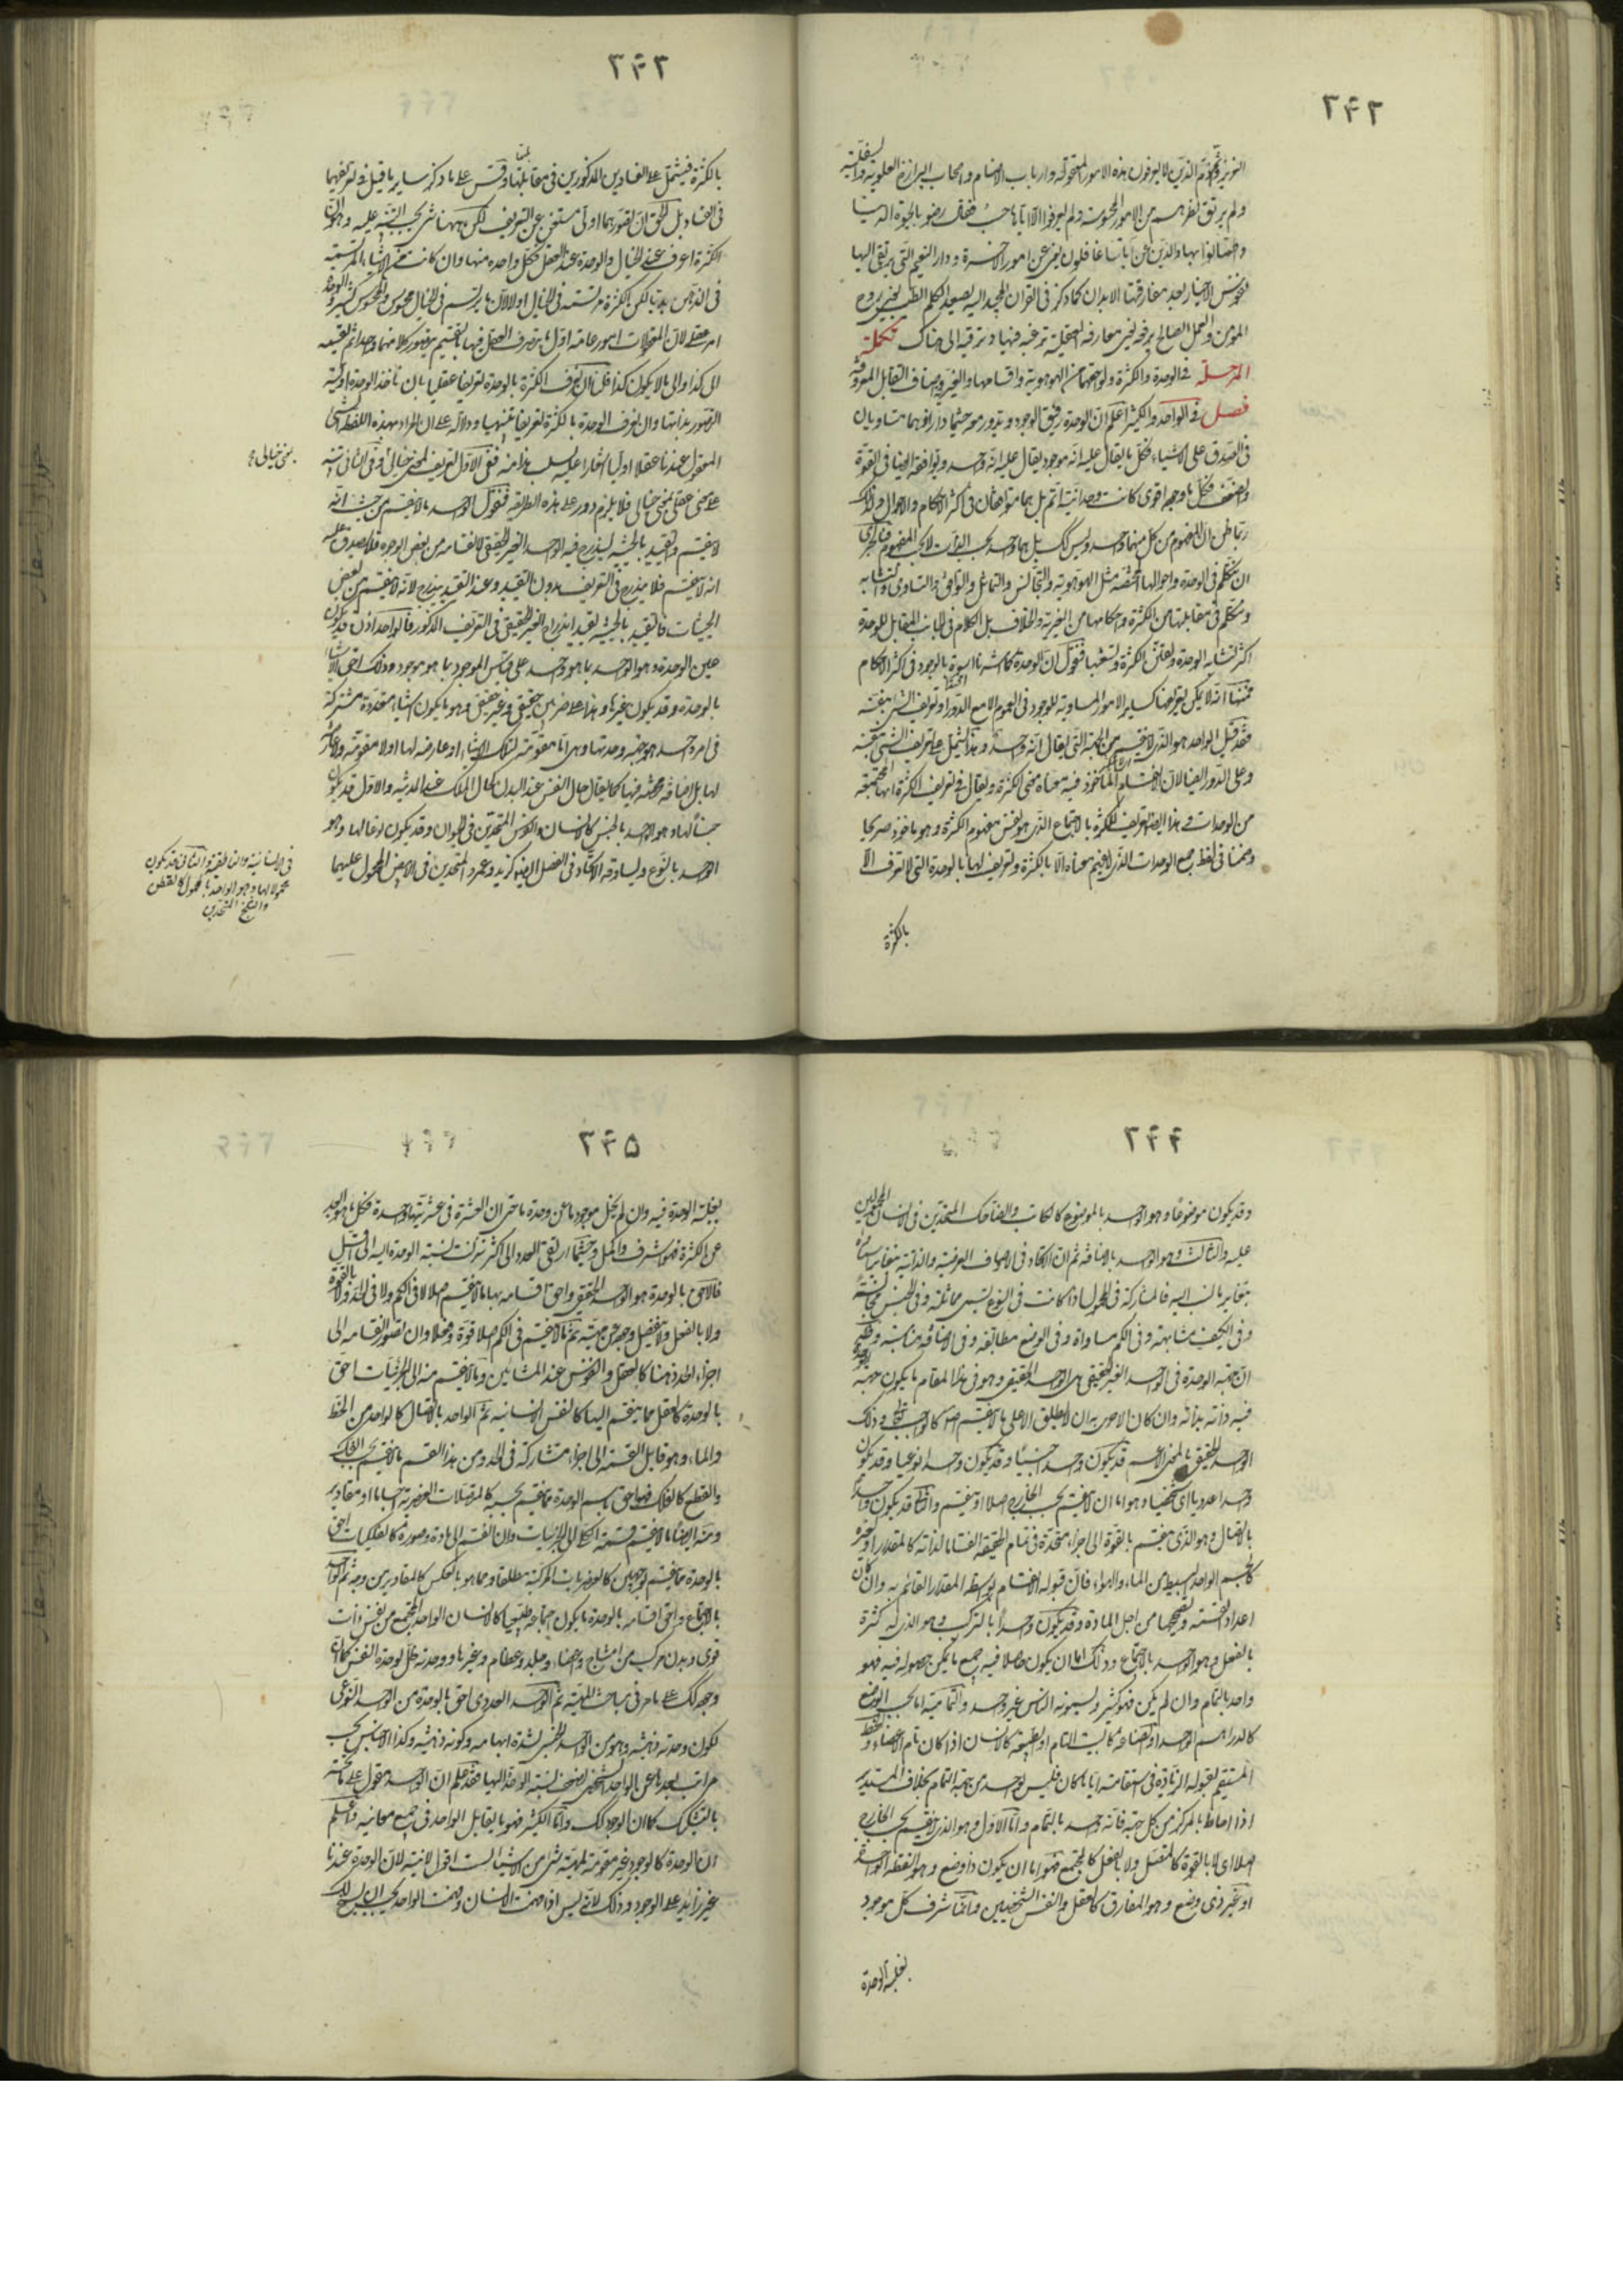 ۲۴۲
ولم يرتق نظرهم من الامور المحسوسة ولم يعرفوا الا اياها حيث رضوا بالحيوة الدنيا
واطمانوا بها والذين هم عن اياتنا غافلون يعني عن امور الاخرة ودار النعيم التي يرتقي اليها
نفوس الاخيار بعد مفارقتها الابدان كما ذكر في القران المجيد اليه يصعد الكلم الطيب يعني روح
المؤمن والعمل الصالح يرفعه يعني معارفه العقلية ترغبه فيها وترقيه الى هناك تكملة
المرحلة في الوحدة والكثرة ولواحقهما من الهوهوية واقسامها والغيرية واصناف التقابل المعروفة
فصل في الواحد والكثير اعلم ان الوحدة رفيق الوجود يدور معه حيثما دار اذ هما متساويان
في الصدق على الاشياء فكل ما يقال عليه انه موجود يقال عليه انه واحد ويوافقه ايضا في القوة
والضعف فكل ما وجوده اقوى كانت وحدانيته اتم بل هما متوافقان في اكثر الاحكام والاحوال ولذلك
ربما ظن ان المفهوم من كل منهما واحد وليس كذلك بل هما واحد بحسب الذات لا بحسب المفهوم فبالحري
ان نتكلم في الوحدة واحوالها المختصة مثل الهوهوية والتجانس والتماثل والتوافق والتساوي والتشابه
ونتكلم في مقابلتها من الكثرة واحكامها من الغيرية والخلاف بل الكلام في الجانب المقابل للوحدة
اكثر لتشابه الوحدة وتفنن الكثرة وتشعبها فنقول ان الوحدة كما اشرنا اسوة بالوجود في اكثر الاحكام
فمنها انه لا يمكن تعريفها كسائر الامور المساوية للوجود في العموم الا مع الدور او تعريف الشيء بنفسه
فقد قيل الواحد هو الذي لا ينقسم من الجهة التي يقال انه واحد وهذا يشتمل على تعريف الشيء بنفسه
وعلى الدور ايضا لان الانقسام الماخوذ فيه معناه معنى الكثرة ويقال في تعريف الكثرة انها المجتمعة
من الوحدات وهذا ايضا تعريف للكثرة بالاجتماع الذي هو نفس مفهوم الكثرة وهو ماخوذ صريحا
وضمنا في لفظ جمع الوحدات الذي لا يفهم معناه الا بالكثرة وتعريف لها بالوحدة التي لا تعرف الا
بالكثرة
۲۴۳
بالكثرة فيشتمل على الفسادين المذكورين في مقابلها وقس على ما ذكر ساير ما قيل في تعريفهما
في الفساد بل الحق ان تصورهما اولى مستغن عن التعريف لكن ههنا شيء يجب التنبيه عليه وهو ان
الكثرة اعرف عند الخيال والوحدة عند العقل فكل واحدة منهما وان كانت من الاشياء المرتسمة
في الذهن بديا لكن الكثرة مرتسمة في الخيال اولا لان ما يرتسم في الخيال محسوس والمحسوس كثير والوحدة
امر عقلي لان المعقولات امور عامة اول ما يتصرف العقل فيها بالتقسيم
الى كذا والى ما لا يكون كذا فلنا ان نعرف الكثرة بالوحدة تعريفا عقليا بان ناخذ الوحدة اولية
التصور بذاتها وان نعرف الوحدة بالكثرة تعريفا تنبيهيا ودلالة على ان المراد بهذه اللفظة الشيء
المعقول عندنا عقلا اوليا اشارة اليه بسلب هذا منه ففي الاول تعريف لمعنى خيالي وفي الثاني تنبيه
على معنى عقلي بمعنى خيالي فلا يلزم دور على هذه الطريقة فنقول الواحد ما لا ينقسم من حيث انه
لا ينقسم والتقييد بالحيثية ليندرج فيه الواحد الغير الحقيقي لانقسامه من بعض الوجوه فلا يصدق عليه
انه لا ينقسم فلا يندرج في التعريف بدون التقييد وعند التقييد يندرج لانه لا ينقسم من بعض
الحيثيات فالتقييد بالحيثية يفيد اندراج الغير الحقيقي في التعريف المذكور فالواحد اذن قد يكون
عين الوحدة وهو الواحد بما هو واحد على قياس الموجود بما هو موجود وذلك احق الاشياء
بالوحدة وقد يكون غيرها وهذا على ضربين حقيقي وغير حقيقي وهو ما يكون اشياء متعددة مشتركة
في امر واحد هو جهة وحدتها وهي اما مقومة لتلك الاشياء او عارضة لها او لا مقومة ولا عارضة
لها بل اضافة محضة فيها كما يقال حال النفس عند البدن كحال الملك عند المدينة والاول قد يكون
جنسا لها وهو الواحد بالجنس كالانسان والفرس المتحدين في الحيوان وقد يكون نوعا لها وهو
الواحد بالنوع ويساوقه الاتحاد في الفصل ايضا كزيد وعمرو المتحدين
بمعنى خيالي
في الانسانية والناطقية والثاني قد يكون
محمولا لها وهو الواحد بالمحمول كالقطن
والثلج المتحدين
في الابيض المحمول عليهما
۲۴۴
وقد يكون موضوعا وهو الواحد بالموضوع كالكاتب والضاحك المتحدين في الانسان المحمولين
عليه والثالث وهو الواحد بالاضافة ثم ان الاتحاد في الاوصاف العرضية والذاتية يتغاير اسماؤه
بتغاير ما نسب اليه فالمشاركة في المحمول اذا كانت في النوع يسمى مماثلة وفي الجنس مجانسة
وفي الكيف مشابهة وفي الكم مساواة وفي الوضع مطابقة وفي الاضافة مناسبة
ان جهة الوحدة في الواحد الغير الحقيقي هي الواحد الحقيقي وهو في هذا المقام ما يكون جهة الوحدة
فيه ذاته بذاته وان كان الاحرى به ان لا يطلق الا على ما لا ينقسم اصلا كالواجب تعالى وذلك
الواحد الحقيقي بالمعنى الاعم قد يكون واحدا جنسيا وقد يكون واحدا نوعيا وقد يكون
واحدا عدديا اي شخصيا وهو اما ان لا ينقسم بحسب الخارج اصلا او ينقسم والثاني قد يكون واحدا
بالاتصال وهو الذي ينقسم بالقوة الى اجزاء متحدة في تمام الحقيقة انقساما لذاته كالمقدار او لغيره
كالجسم الواحد البسيط من الماء والهواء فان قبوله الانقسام بواسطة المقدار القائم به وان كان
اعداد القسمة وتصحيحها من اجل المادة وقد يكون واحدا بالتركيب وهو الذي له كثرة
بالفعل وهو الواحد بالاجتماع وذلك اما ان يكون حاصلا فيه جميع ما يمكن حصوله فيه فهو
واحد بالتمام وان لم يكن فهو كثير ويسمونه الناس غير واحد والتمامية اما بحسب الوضع
كالدرهم الواحد او الصناعة كالبيت التام او الطبيعة كالانسان اذا كان تام الاعضاء والخط
المستقيم لقبوله الزيادة في استقامته ايا ما كان فليس بواحد من جهة التمام بخلاف المستدير
اذا احاط بالمركز من كل جهة فانه واحد بالتمام واما الاول وهو الذي لا ينقسم بحسب الخارج
اصلا اي لا بالقوة كالمتصل ولا بالفعل كالمجتمع فهو اما ان يكون ذا وضع وهو النقطة الواحدة
او غير ذي وضع وهو المفارق كالعقل والنفس الشخصيين وانما شرف كل موجود
بغلبة الوحدة
۲۴۵
بغلبة الوحدة فيه وان لم يخل موجود ما عن وحدة ما حتى ان العشرة في عشريتها واحدة فكل ما هو ابعد
عن الكثرة فهو اشرف واكمل وحيثما ارتقى العدد الى اكثر نزلت نسبة الوحدة اليه الى اقل
فالاحق بالوحدة هو الواحد الحقيقي واحق اقسامه بها ما لا ينقسم اصلا لا في الكم ولا في الحد ولا بالقوة
ولا بالفعل ولا ينفصل وجوده عن مهيته ثم ما لا ينقسم في الكم اصلا قوة وفعلا وان تصور انقسامه الى
اجزاء الحد ذهنا كالعقل والنفس عند المشائين وما لا ينقسم منه الى الجزئيات احق
بالوحدة كالعقل مما ينقسم اليها كالنفس الانسانية ثم الواحد بالاتصال كالواحد من الخط
والماء وهو قابل القسمة الى اجزاء متشاركة في الحد ومن هذا القسم ما لا ينقسم بحسب الفك
والقطع كالفلك فهو احق باسم الوحدة مما ينقسم بحسبه كالمتصلات العنصرية اجساما او مقادير
ومنه ايضا ما لا ينقسم قسمة الكلي الى الجزئيات وان انقسم الى مادة وصورة كالفلكيات احق
بالوحدة مما ينقسم بوجهين كالعنصريات المركبة مطلقا ومما هو بالعكس كالمقادير من وجه ثم الواحد
بالاجتماع واحق اقسامه بالوحدة ما يكون اجتماعه طبيعيا كالانسان الواحد المجتمع من نفس ذات
قوى وبدن مركب من امشاج واعضاء وجلد وعظام وغيرها ووحدته ظل لوحدة النفس كما ان
وجوده كذلك على ما مر في مباحث المهية ثم الواحد العددي احق بالوحدة من الواحد النوعي
لكون وحدته ذهنية وهو من الواحد الجنسي لشدة ابهامه وكونه ذهنية وكذا الاجناس بحسب
مراتب بعدها عن الواحد الشخصي يضعف نسبة الوحدة اليها فقد علم ان الواحد مقول على ما تحته
بالتشكيك كما ان الوجود كذلك واما الكثير فهو ما يقابل الواحد في جميع معانيه واعلم
ان الوحدة كالوجود غير مقومة لمهية شيء من الاشياء لست اقول لانيته لان الوحدة عندنا
غير زايدة على الوجود وذلك لانه ليس اذا فهمت الانسان وفهمت الواحد يجب ان يسنح لك